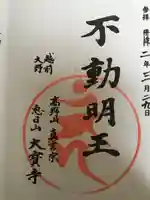 参拝 降誕二年三月二九日
不動明王
越前大野
高野山真言宗
恵日山
大寶寺